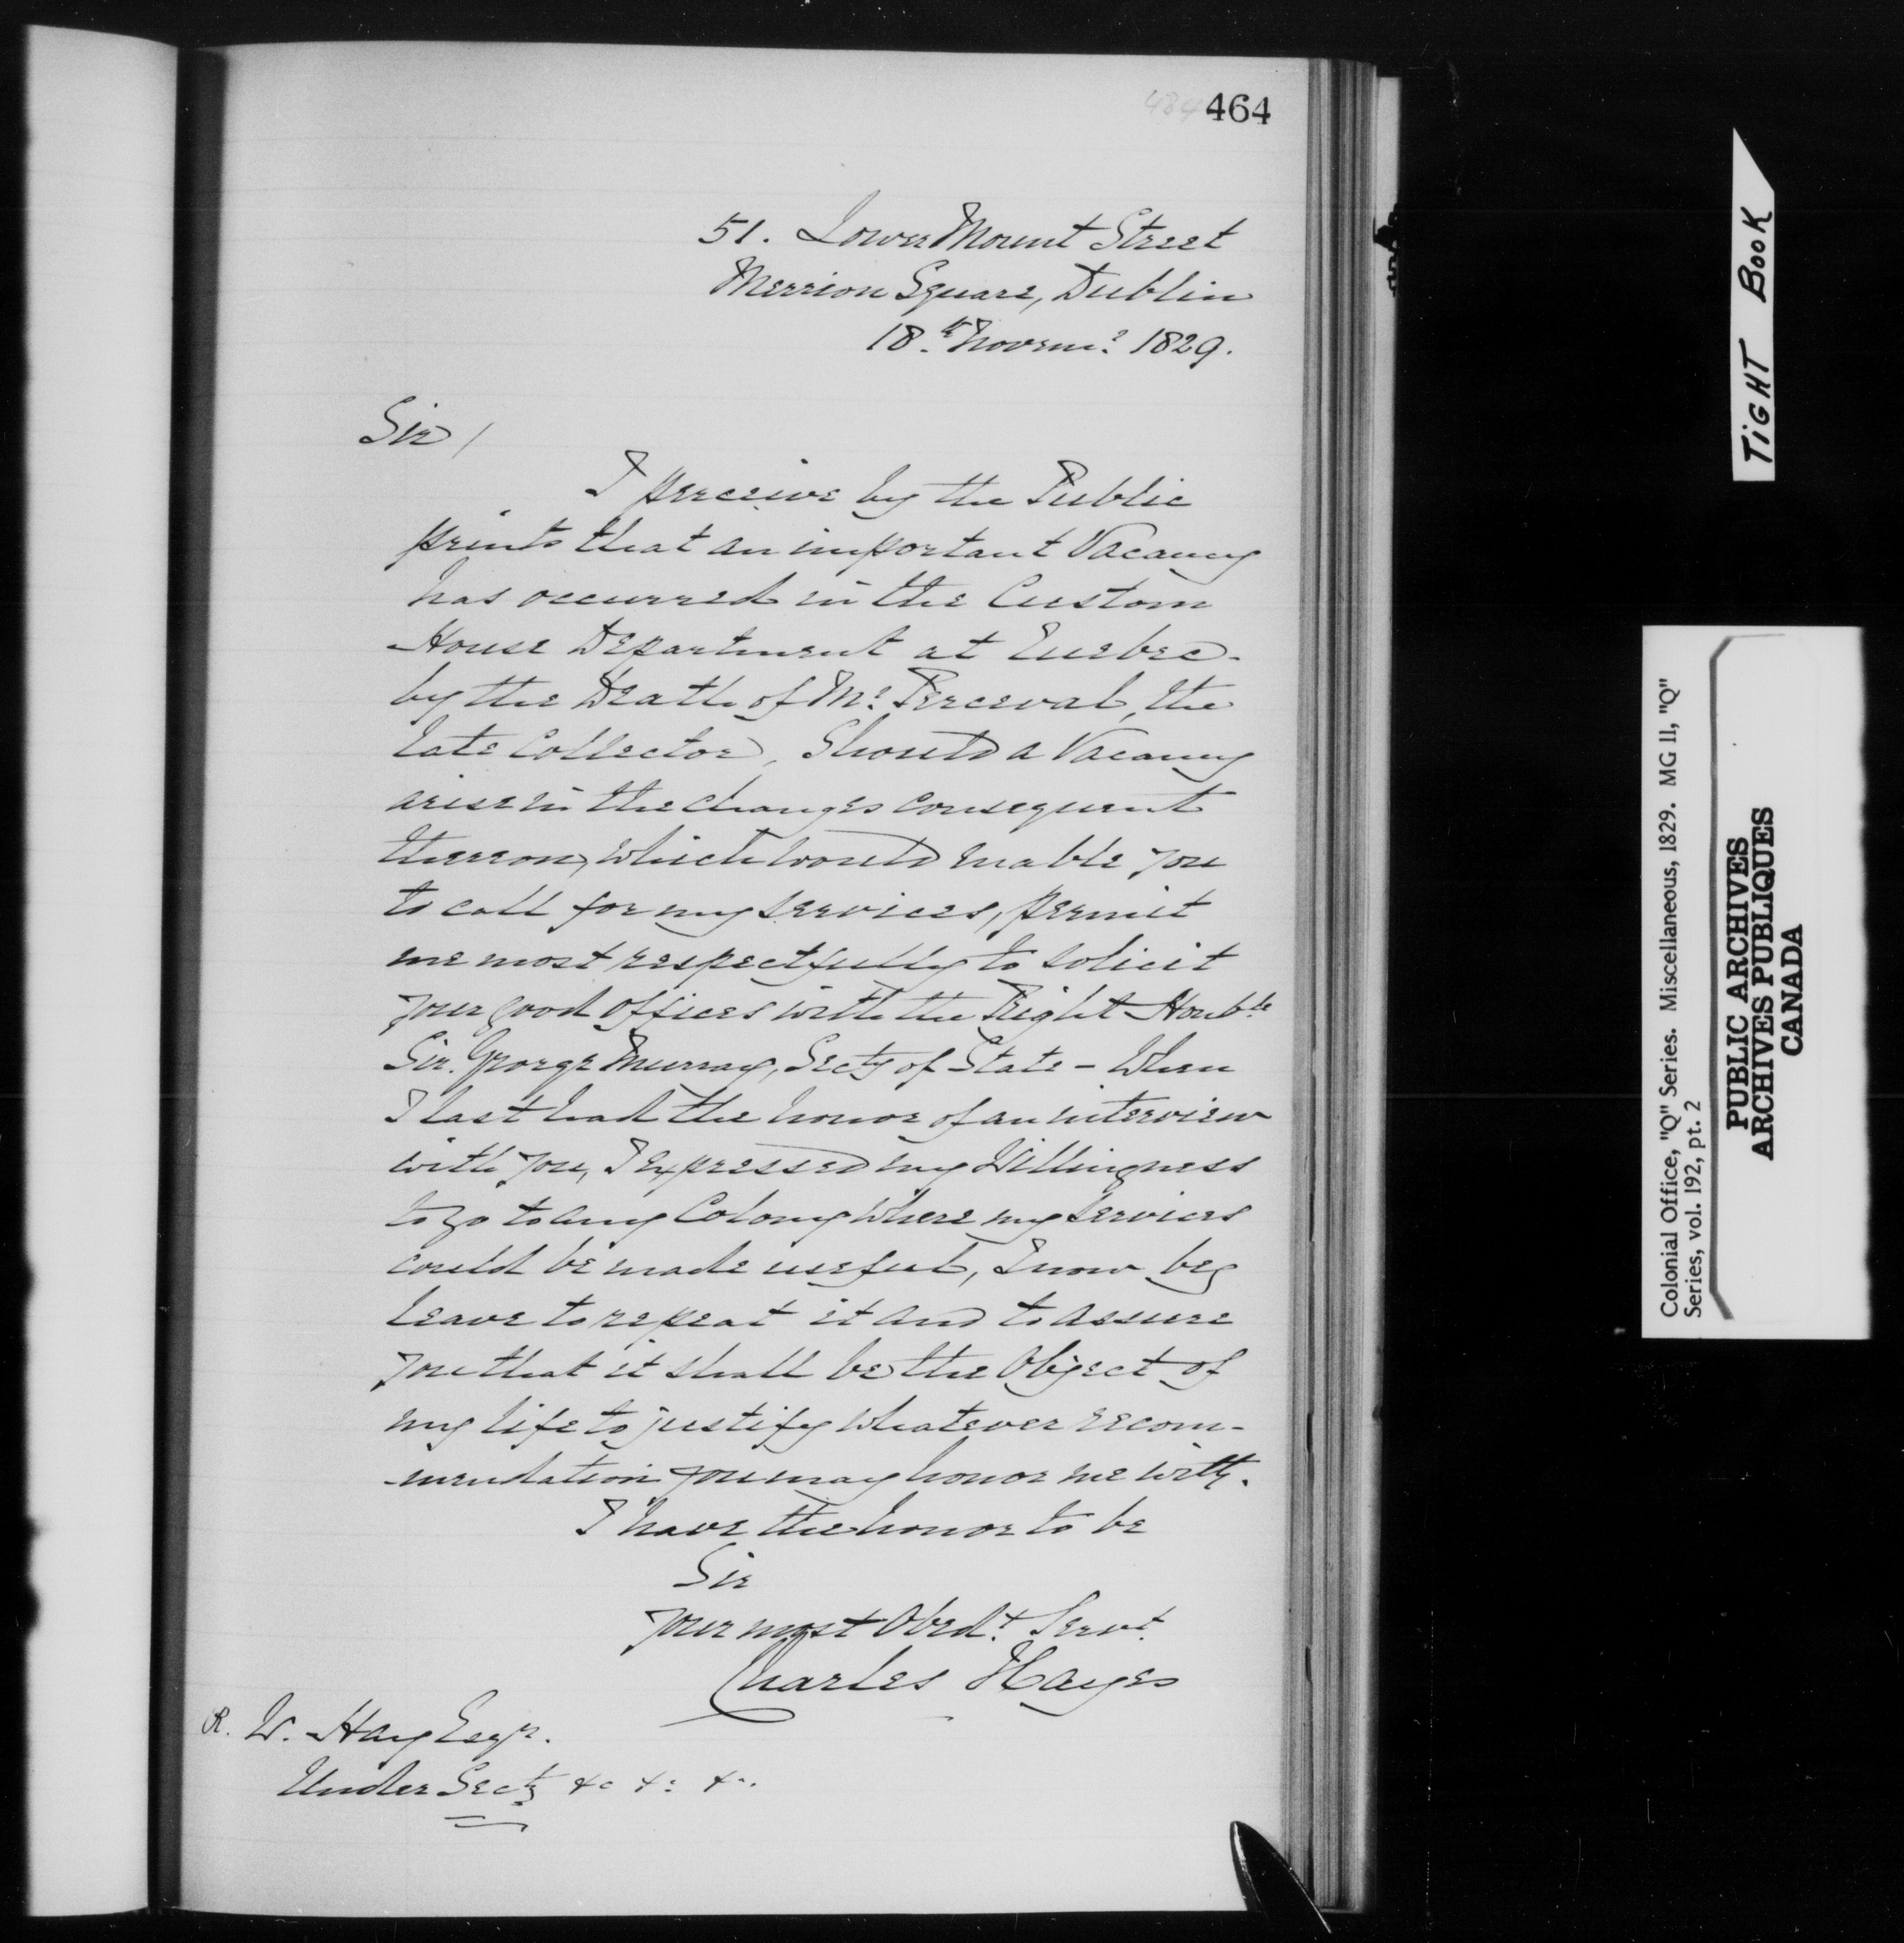 484 464
51. Lower Mount Street
Merrion Square, Dublin
18.th Novemr. 1829.
Sir /
I perceive by the Public
prints that an important Vacancy
has occurred in the Custom
House Department at Quebec -
by the Death of Mr. Perceval, the
late Collector, Should a Vacancy
arise in the changes consequent
thereon, which would enable you
to call for my services, permit
me most respectfully to solicit
your good offices with the Right Honble.
Sir. George Murray, Secty of State - When
I last had the honor of an interview
with you, I expressed my Willingness
to go to any Colony where my services
could be made useful, I now beg
leave to repeat it and to assure
you that it shall be the Object of
my life to justify whatever recom-
-mendation you may honor me with.
I have the honor to be
Sir
Your most Obedt. Servt.
Charles Hayes
R. W. Hay Esqr.
Under Secty &c &c &c.
TIGHT BOOK
Colonial Office, "Q" Series. Miscellaneous, 1829. MG 11, "Q"
Series, vol. 192, pt. 2
PUBLIC ARCHIVES
ARCHIVES PUBLIQUES
CANADA